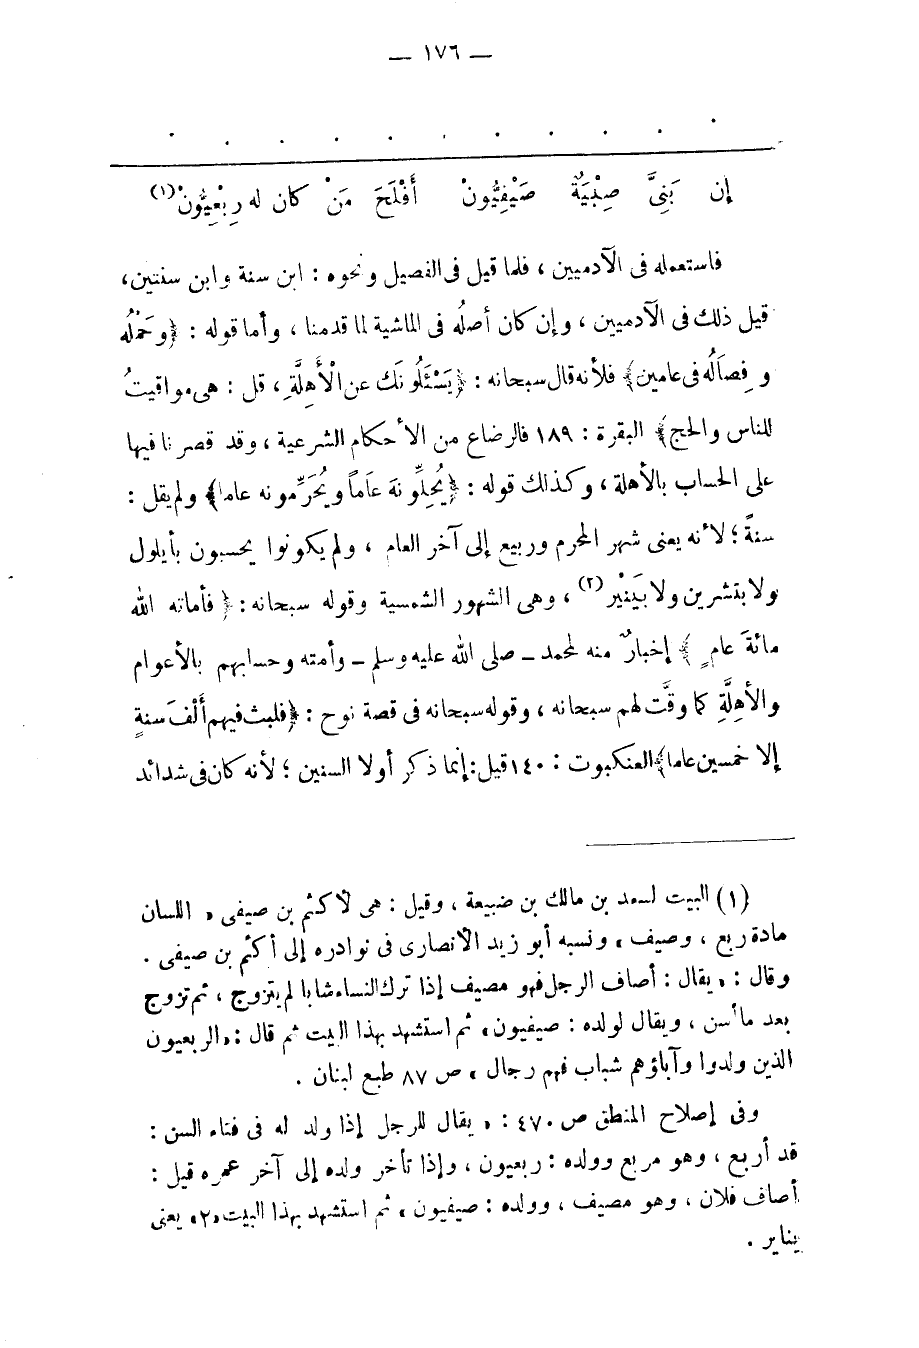 — ١٧٦ —
إن بَنِيَّ صِبْيَةٌ صَيْفِيُّونْ أَفْلَحَ مَنْ كان له رِبْعِيُّونْ(١)
فاستعمله فى الآدميين ، فلما قيل فى الفصيل ونحوه : ابن سنة وابن سنتين،
قيل ذلك فى الآدميين ، وإن كان أصلُه فى الماشية لما قدمنا ، وأما قوله : ﴿وحَمْلُه
وفِصَالُه فى عامين﴾ فلأنه قال سبحانه : ﴿يَسْئَلُونَكَ عن الْأَهِلَّةِ ، قل : هى مواقيتُ
للناس والحج﴾ البقرة : ١٨٩ فالرضاع من الأحكام الشرعية ، وقد قصرنا فيها
على الحساب بالأهلة ، وكذلك قوله : ﴿يُحِلِّونَهَ عَاماً ويُحَرِّمونه عاما﴾ ولم يقل :
سنةً ؛ لأنه يعنى شهر المحرم وربيع إلى آخر العام ، ولم يكونوا يحسبون بأيلول
ولا بتشرين ولا بيَنَيْر(٢) ، وهى الشهور الشمسية وقوله سبحانه : ﴿ فأماته الله
مائةَ عامٍ ﴾ إخبارٌ منه لمحمد ــ صلى الله عليه وسلم ــ وأمته وحسابهم بالأعوام
والأهِلَّةِ كما وقَّت لهم سبحانه ، وقوله سبحانه فى قصة نوح : ﴿فلبث فيهم أَلْفَ سنةٍ
إلا خمسين عاما﴾ العنكبوت : ١٤٠ قيل : إنما ذكر أولا السنين ؛ لأنه كان فى شدائد
(١) البيت لسعد بن مالك بن ضبيعة ، وقيل : هى لأكثم بن صيفى « اللسان
مادة ربع ، وصيف » ونسبه أبو زيد الأنصارى فى نوادره إلى أكثم بن صيفى .
وقال : « يقال : أصاف الرجل فهو مصيف إذا ترك النساء شابا لم يتزوج ، ثم تزوج
بعد ما أسن ، ويقال لولده : صيفيون » ثم استشهد بهذا البيت ثم قال : « الربعيون
الذين ولدوا وآباؤهم شباب فهم رجال » ص ٨٧ طبع لبنان .
وفى إصلاح المنطق ص ٤٧٠ : « يقال للرجل إذا ولد له فى فتاء السن :
قد أربع ، وهو مربع وولده : ربعيون ، وإذا تأخر ولده إلى آخر عمره قيل :
أصاف فلان ، وهو مصيف ، وولده : صيفيون » ثم استشهد بهذا البيت «٢» يعنى
يناير .